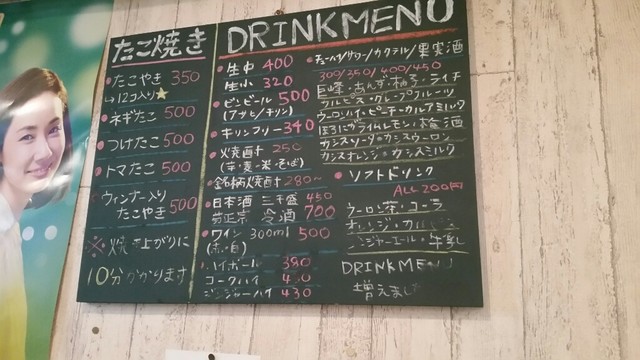 たこ焼き
・たこやき 350
↳12コ入り★
・ネギたこ 500
・つけたこ 500
・トマたこ 500
・ウィンナー入り
たこやき 500
※焼き上がりに
10分かかります
DRINKMENU
・生中 400
生小 320
・ビンビール 500
(アサヒ/キリン)
・キリンフリー 340
・焼酎 250
(芋・麦・米・そば)
・銘柄焼酎 280〜
・日本酒 三千盛 450
菊正宗 冷酒 700
・ワイン 300ml 500
(赤・白)
・ハイボール 380
コークハイ
ジンジャーハイ 430
・チューハイ/サワー/カクテル/果実酒
300/350/400/450
巨峰・あんず・柚子・ライチ
カルピス・グレープフルーツ
ウーロンハイ・ピーチ・カルアミルク
ほろにがライムレモン・梅酒
カシスソーダ・カシスウーロン
カシスオレンジ・カシスミルク
・ソフトドリンク
ALL 200円
ウーロン茶・コーラ
オレンジ・カル
ジンジャーエール・牛乳
DRINKMENU
増えまし